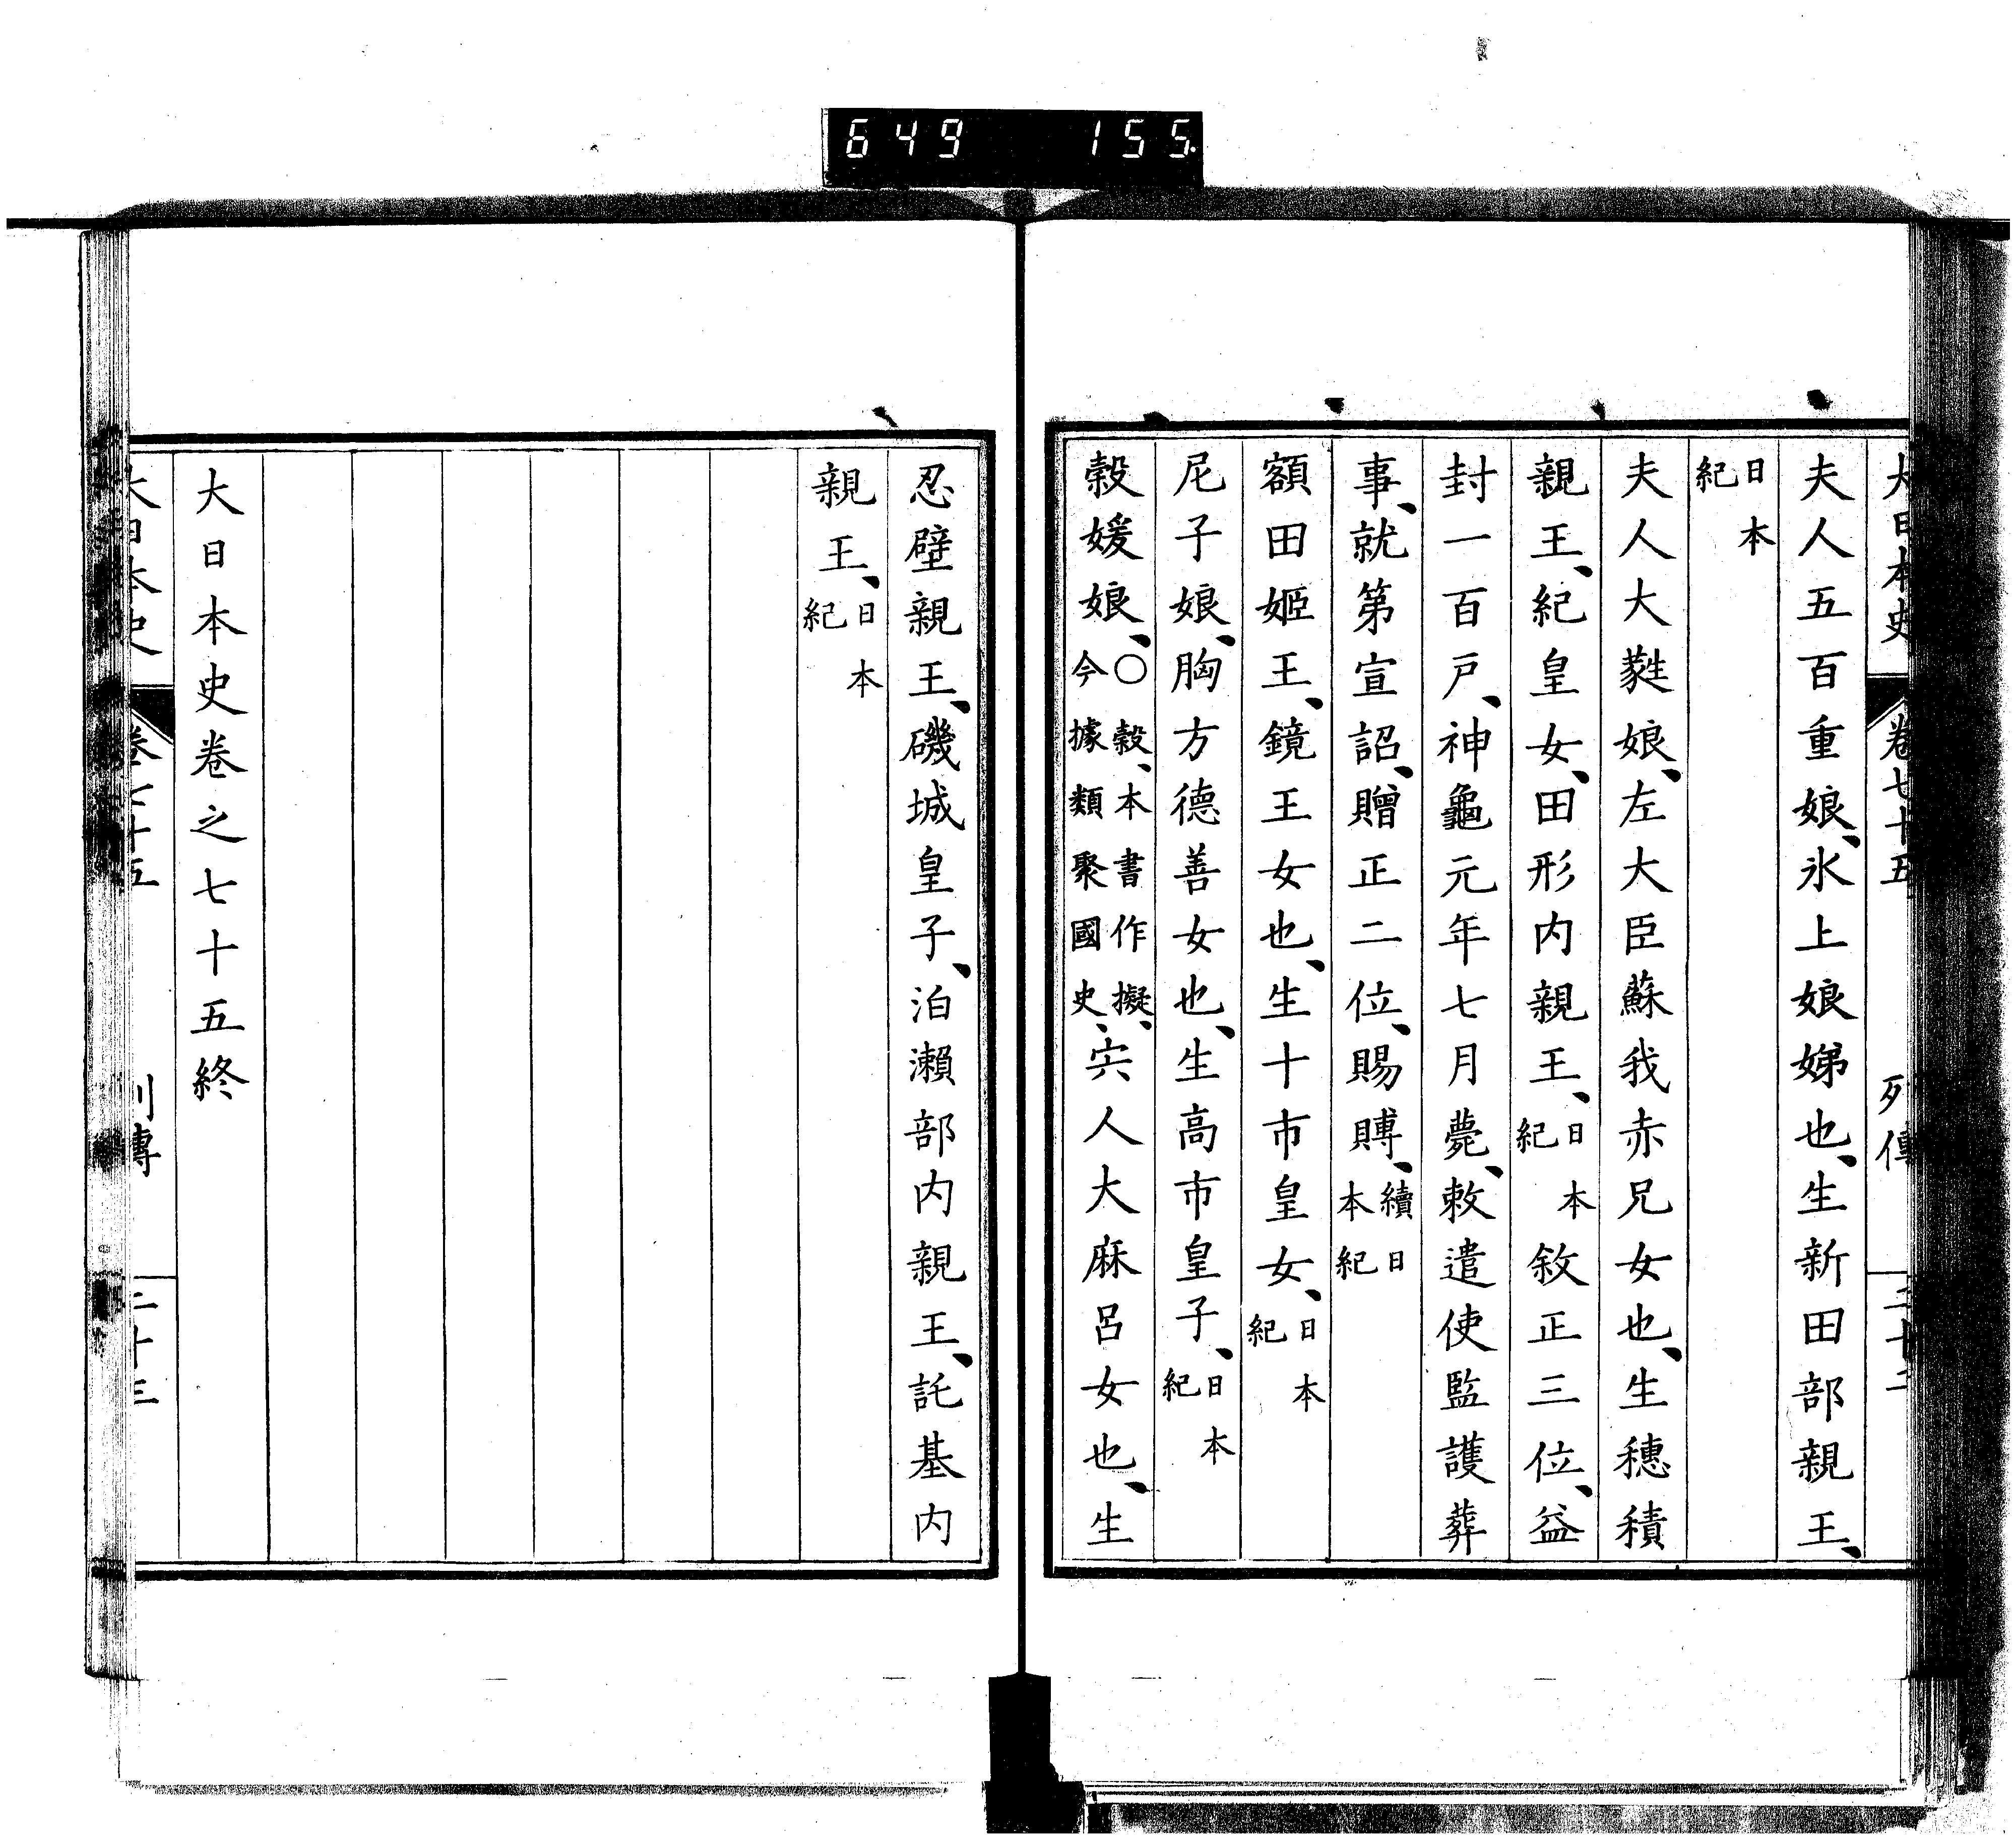 649 155
大日本史 卷七十五 列傳 二十二
夫人五百重娘、氷上娘娣也、生新田部親王、
日本紀
夫人大蕤娘、左大臣蘇我赤兄女也、生穗積
親王、紀皇女、田形内親王、日本紀敘正三位、益
封一百戸、神龜元年七月薨、敕遣使監護葬
事、就第宣詔、贈正二位、賜賻、續日本紀
額田姬王、鏡王女也、生十市皇女、日本紀
尼子娘、胸方德善女也、生高市皇子、日本紀
穀媛娘、○穀、本書作擬、今據類聚國史、宍人大麻呂女也、生
忍壁親王、磯城皇子、泊瀨部内親王、託基内
親王、日本紀
大日本史卷之七十五終
大日本史 卷七十五 列傳 二十三